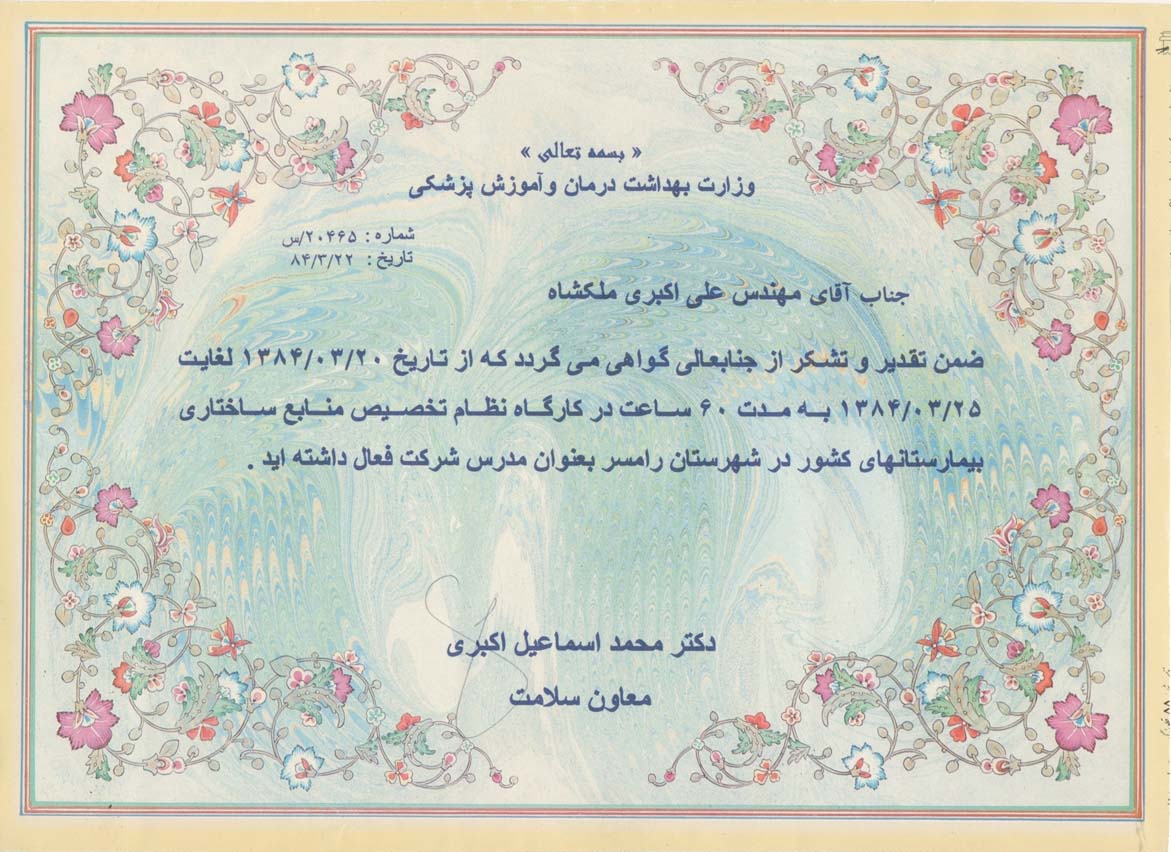 « بسمه تعالی »
وزارت بهداشت درمان وآموزش پزشکی
شماره : ۲۰۴۶۵/س
تاریخ : ۸۴/۳/۲۲
جناب آقای مهندس علی اکبری ملکشاه
ضمن تقدیر و تشکر از جنابعالی گواهی می گردد که از تاریخ ۱۳۸۴/۰۳/۲۰ لغایت
۱۳۸۴/۰۳/۲۵ به مدت ۶۰ ساعت در کارگاه نظام تخصیص منابع ساختاری
بیمارستانهای کشور در شهرستان رامسر بعنوان مدرس شرکت فعال داشته اید .
دکتر محمد اسماعیل اکبری
معاون سلامت